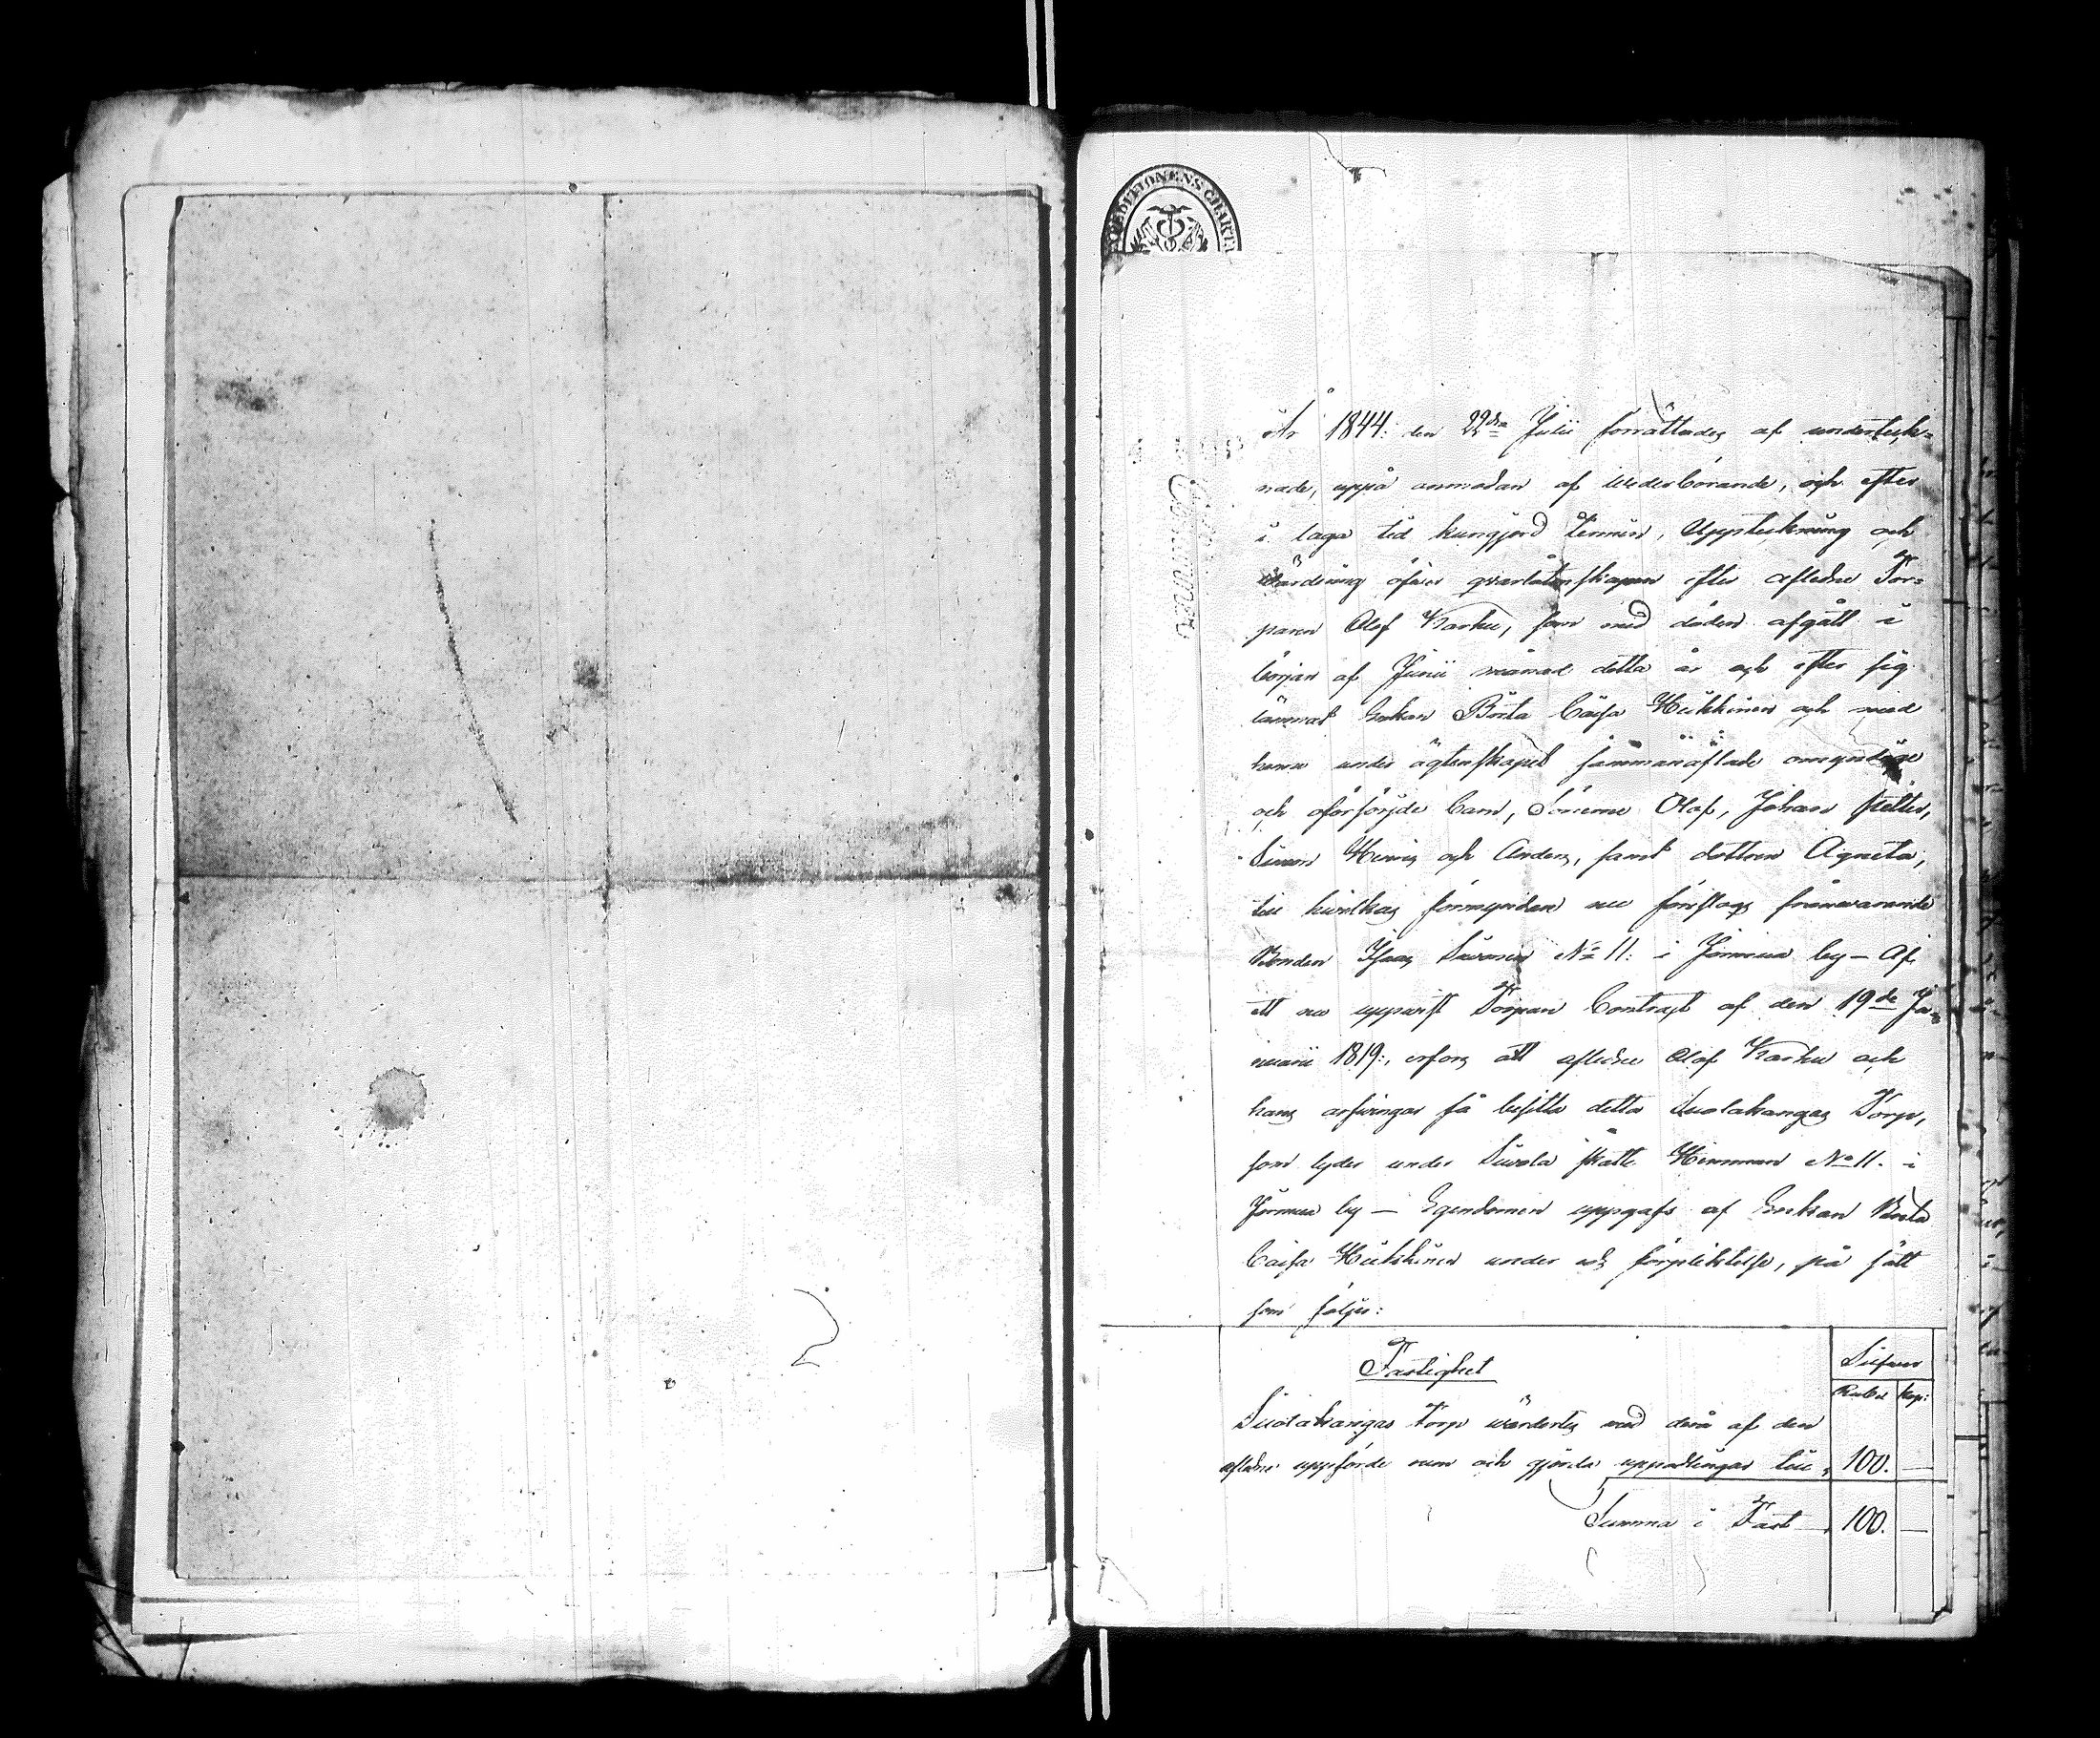 EXPEDITIONENS CHARTA
År 1844: den 22dra Julii förrättades af underteck-
nade, uppå anmodan af wederbörande, och efter
i laga tid kungjord termin, Uppteckning och
Wärdering öfwer qvarlåtenskapen efter afledne Tor-
paren Olof Karhu, som med döden afgått i
början af Junii månad detta år och efter sig
lämnat Enkan Brita Caisa Heikkinen och med
henne under ägtenskapet sammanaflade omyndige
och oförsörjde barn, Sönerne Olof, Johan Petter,
Simon Henric och Anders, samt dottren Agneta,
till hwilkas förmyndare nu föreslogs frånwarande
Bonden Isaac Siwonen No 11: i Jormua by — Af
ett nu uppwist Torpare Contract af den 19de Ja-
nuarii 1819:, erfors att aflidne Olof Karhu och
hans arfwingar få besitta detta Suolakangas Torp,
som lyder under Siwola skatte Hemman No 11. i
Jormua by — Egendomen uppgafs af Enkan Brita
Caisa Heikkinen under eds förpliktelse, på sätt
som följer:
Fastighet
Silfwer
Rubel Kop:
Suolakangas torp wärderts med derå af den
aflidne uppförde rum och gjorda uppodlingar till 100. —
Summa i Fast 100. —